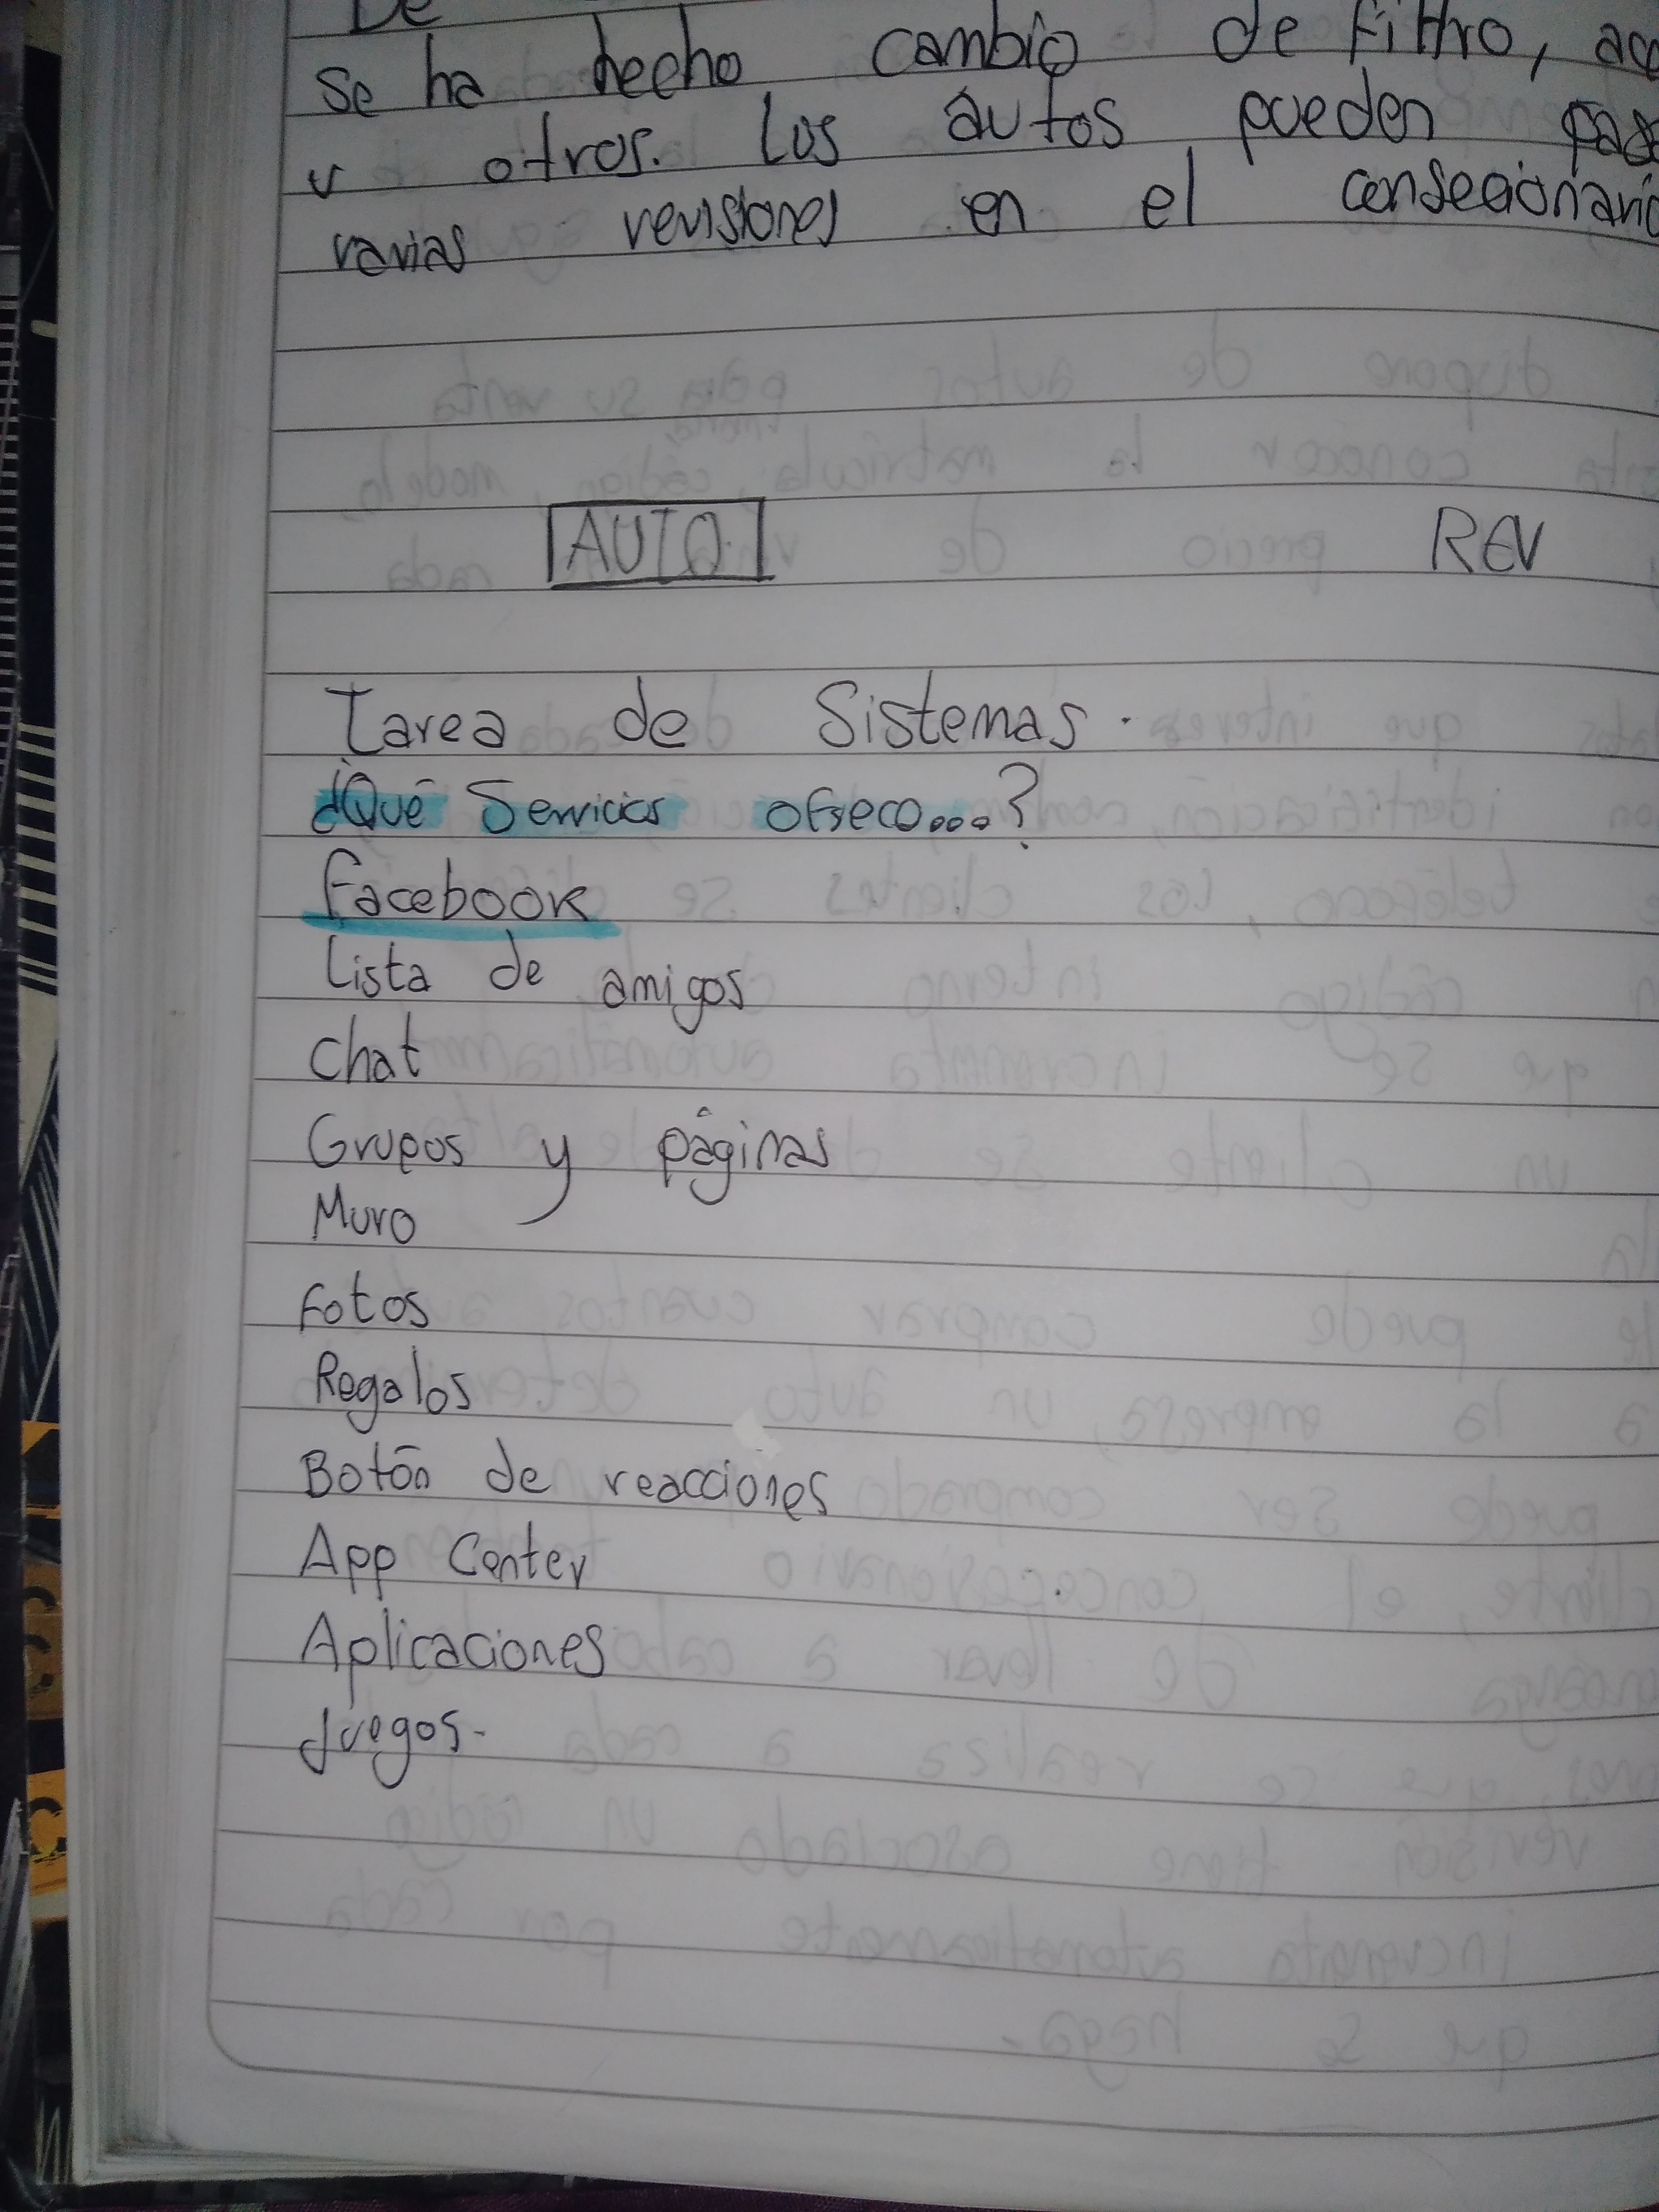 De
se ha hecho cambio de filtro, ace
u otros. Los autos pueden pasa
varias revisiones en el consecionario
AUTO REV
Tarea de Sistemas.
¿Qué Servicios ofreco...?
Facebook
Lista de amigos
Chat
Grupos y páginas
Muro
Fotos
Regalos
Botón de reacciones
App Center
Aplicaciones
Juegos.